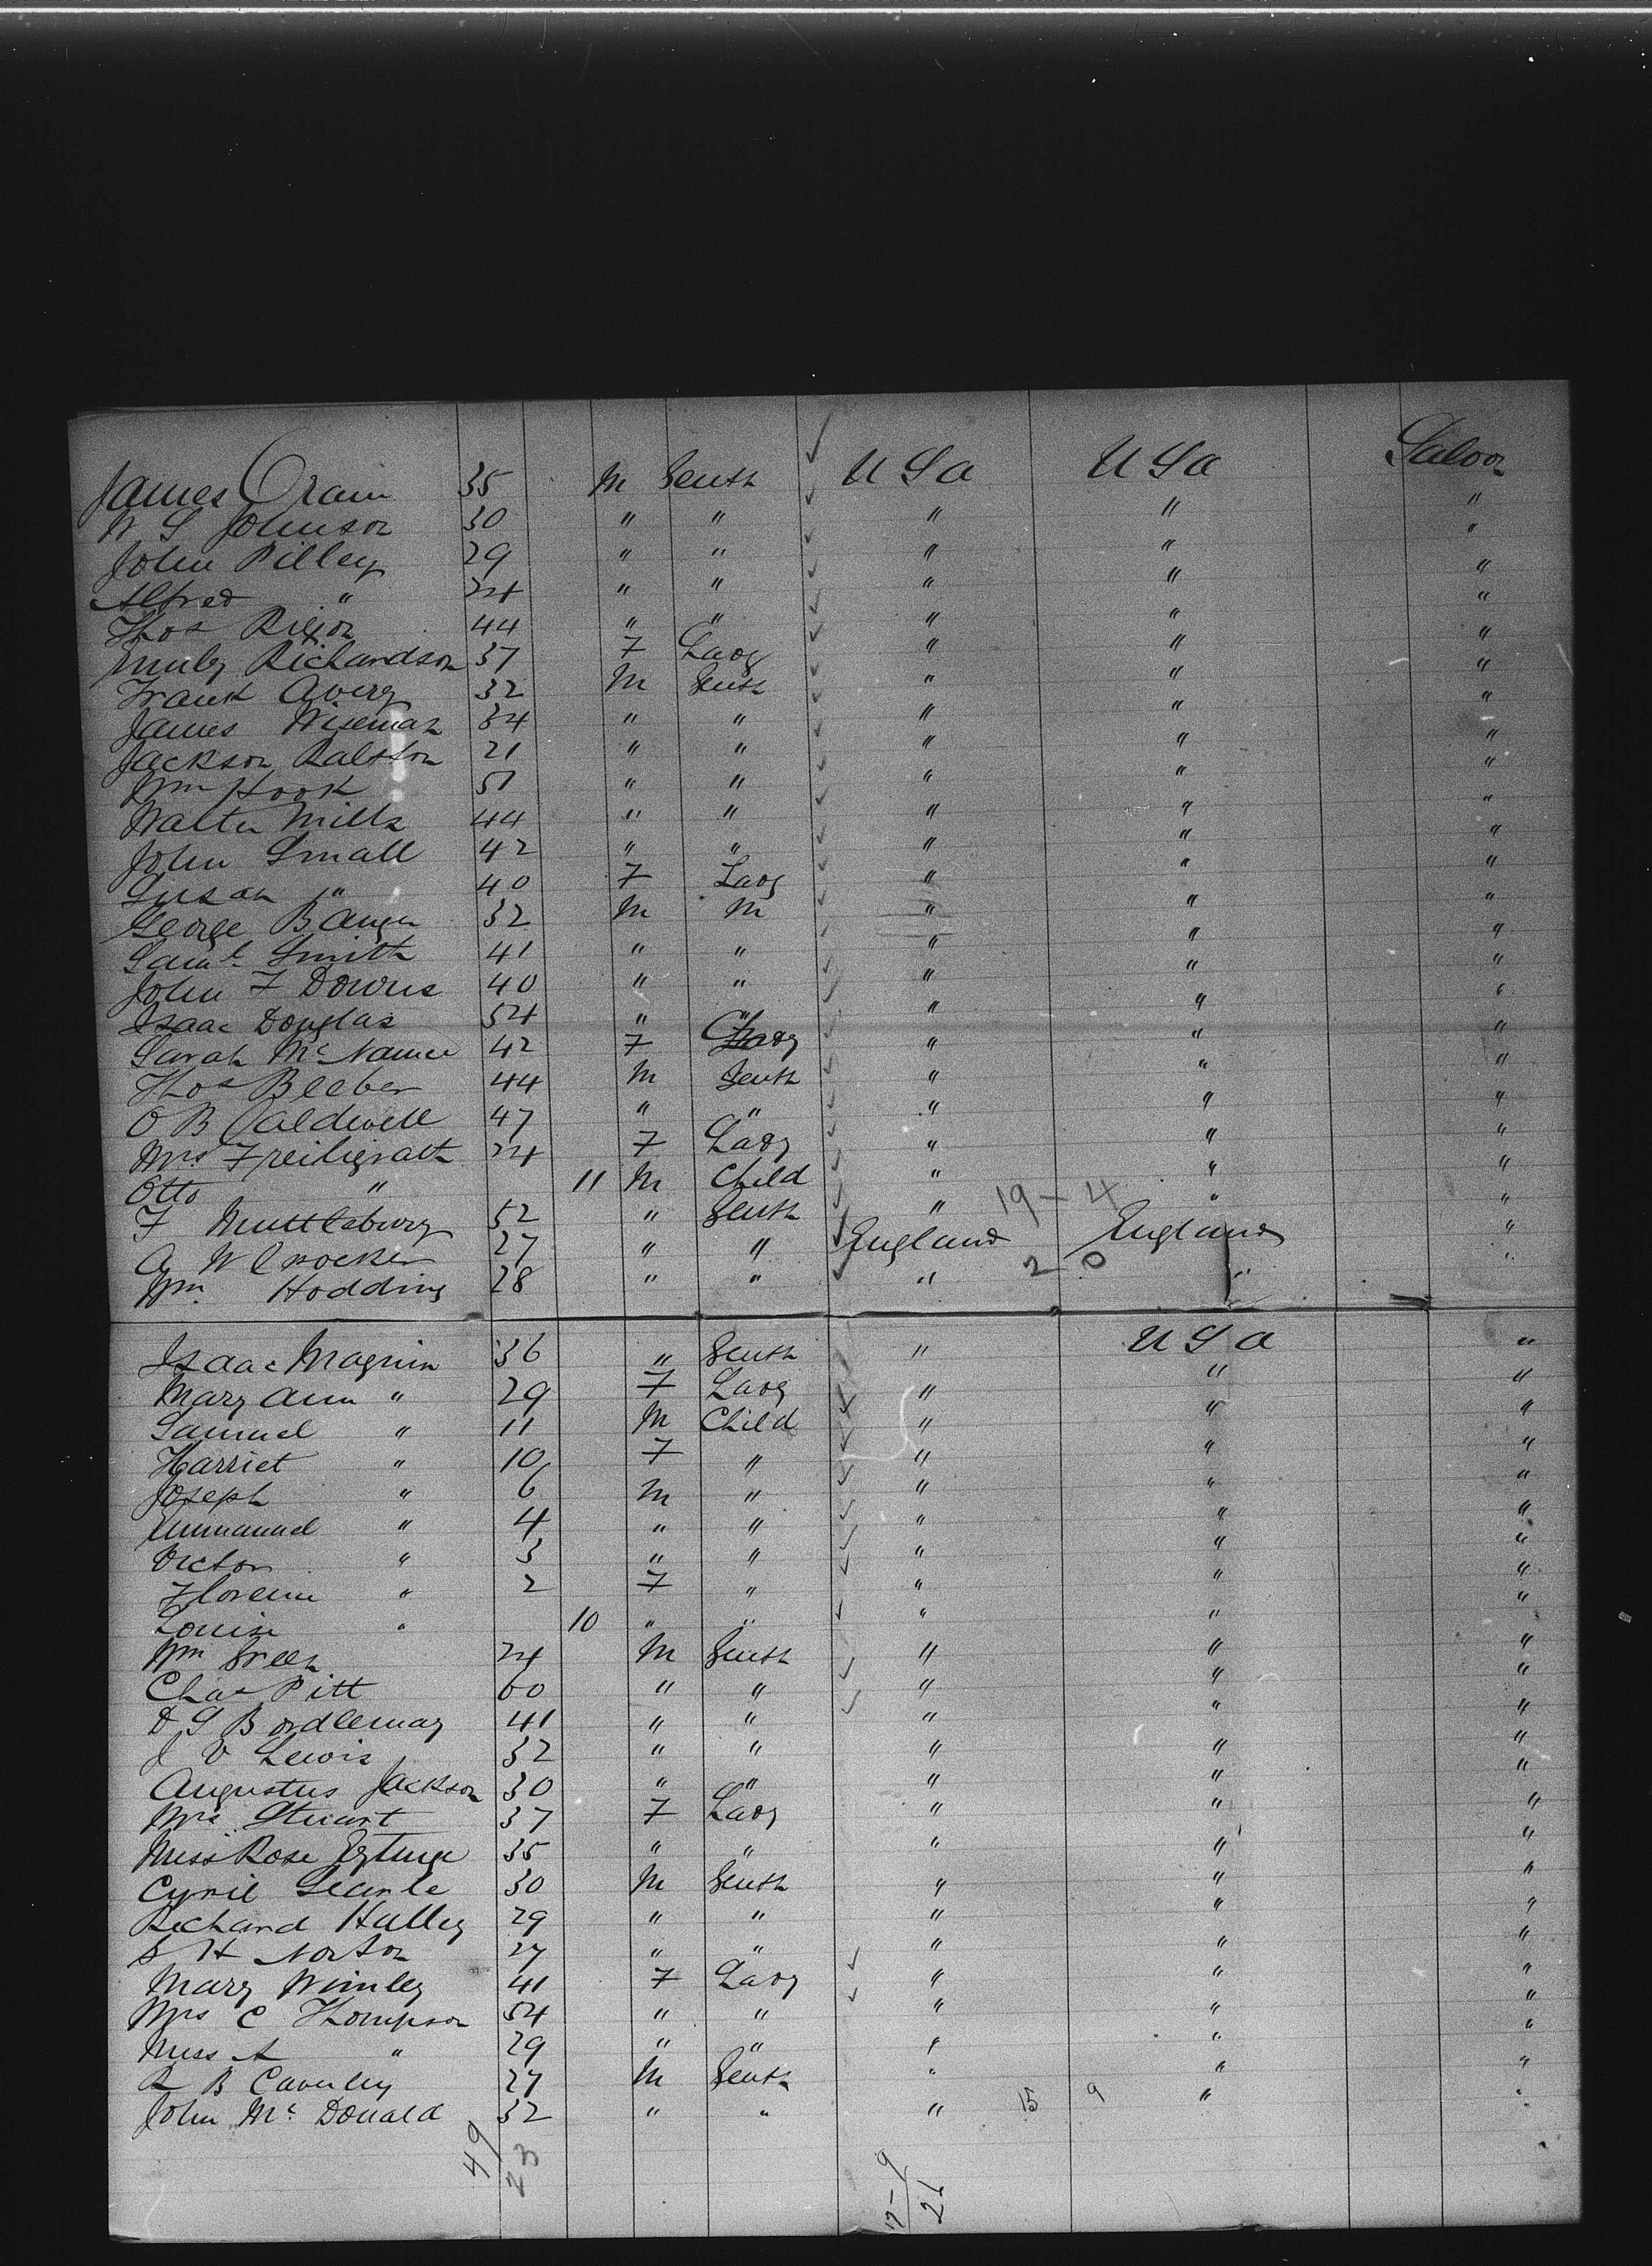 James Crain 35 M Gentn U S a U S a Saloon
W S Johnson 30 " " " " "
John Pilley 29 " " " " "
Alfred " 24 " " " " "
Thos Rixon 44 " " " " "
Emily Richardson 37 F Lady " " "
Frank Avery 32 M Gentn " " "
James Wiseman 34 " " " " "
Jackson Ralston 21 " " " " "
Wm Hook 51 " " " " "
Walter Mills 44 " " " " "
John Small 42 " " " " "
Susan " 40 F Lady " " "
George Banger 32 M M " " "
Saml Smith 41 " " " " "
John F Downs 40 " " " " "
Isaac Douglas 54 " " " " "
Sarah McNamee 42 F Lady " " "
Thos Beeber 44 M Gentn " " "
O B Caldwell 47 " " " " "
Mrs Freiligrath 24 F Lady " " "
Otto " 11 M Child " " "
F Muttlebury 52 " Gentn " 19 - 4 " "
A W Crocker 27 " " England England "
Wm Hodding 28 " " " 2 - 0 " "
Isaac Magnin 36 " Gentn " U S a "
Mary Ann " 29 F Lady " " "
Samuel " 11 M Child " " "
Harriet " 10 F " " " "
Joseph " 6 M " " " "
Emmanuel " 4 " " " " "
Victor " 3 " " " " "
Florence " 2 F " " " "
Louise " 10 " " " " "
Wm Green 24 M Gentn " " "
Chas Pitt 60 " " " " "
D G Bordlemay 41 " " " " "
J V Lewis 32 " " " " "
Augustus Jackson 30 " " " " "
Mrs Stuart 37 F Lady " " "
Miss Rose Eytinge 35 " " " " "
Cyril Searle 30 M Gentn " " "
Richard Halley 29 " " " " "
S H Norton 27 " " " " "
Mary Wimley 41 F Lady " " "
Mrs C Thompson 54 " " " " "
Miss A " 29 " " " " "
R B Caverley 27 M Gentn " " "
John McDonald 32 " " " 15 9 " "
49
23
17 - 9
26